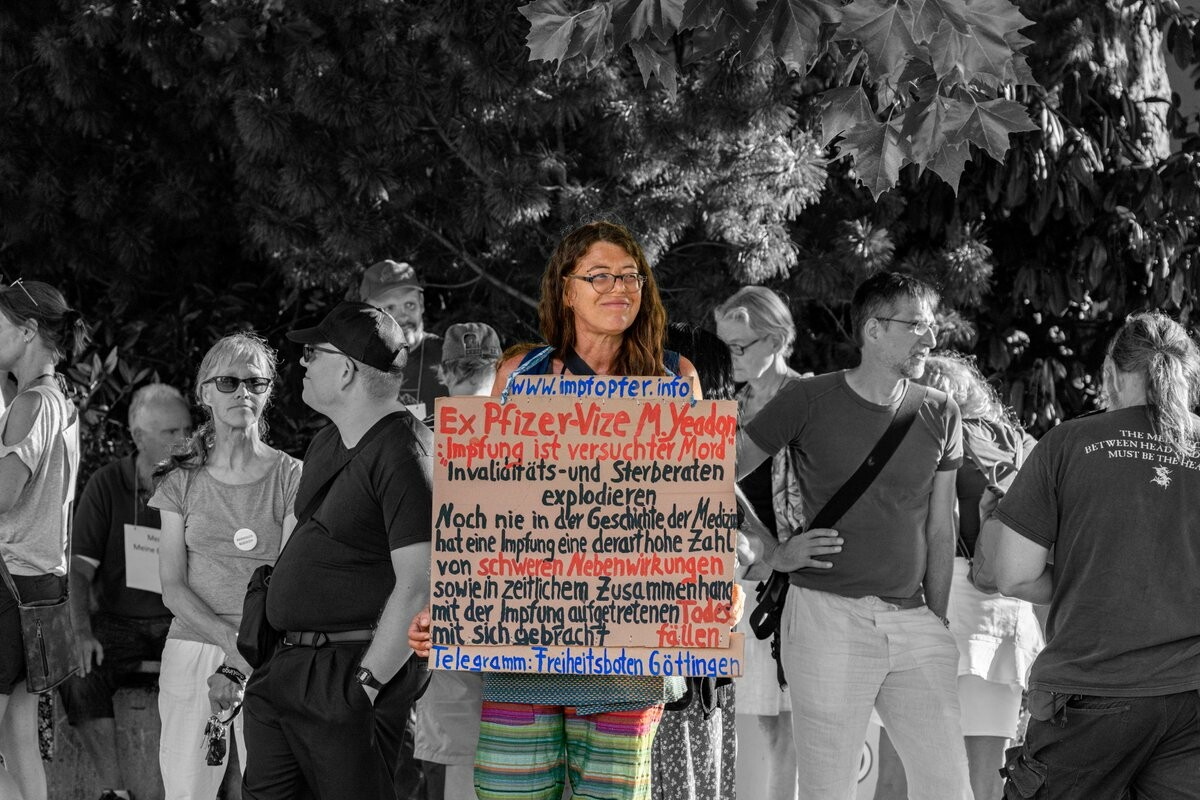 www.impfopfer.info
Ex Pfizer-Vize M. Yeadon
:"Impfung ist versuchter Mord"
Invaliditäts-und Sterberaten
explodieren
Noch nie in der Geschichte der Medizin
hat eine Impfung eine derart hohe Zahl
von schweren Nebenwirkungen
sowie in zeitlichem Zusammenhang
mit der Impfung aufgetretenen Todes
mit sich gebracht fällen
Telegramm: Freiheitsboten Göttingen
Meine
THE ME
BETWEEN HEAD
MUST BE THE HE